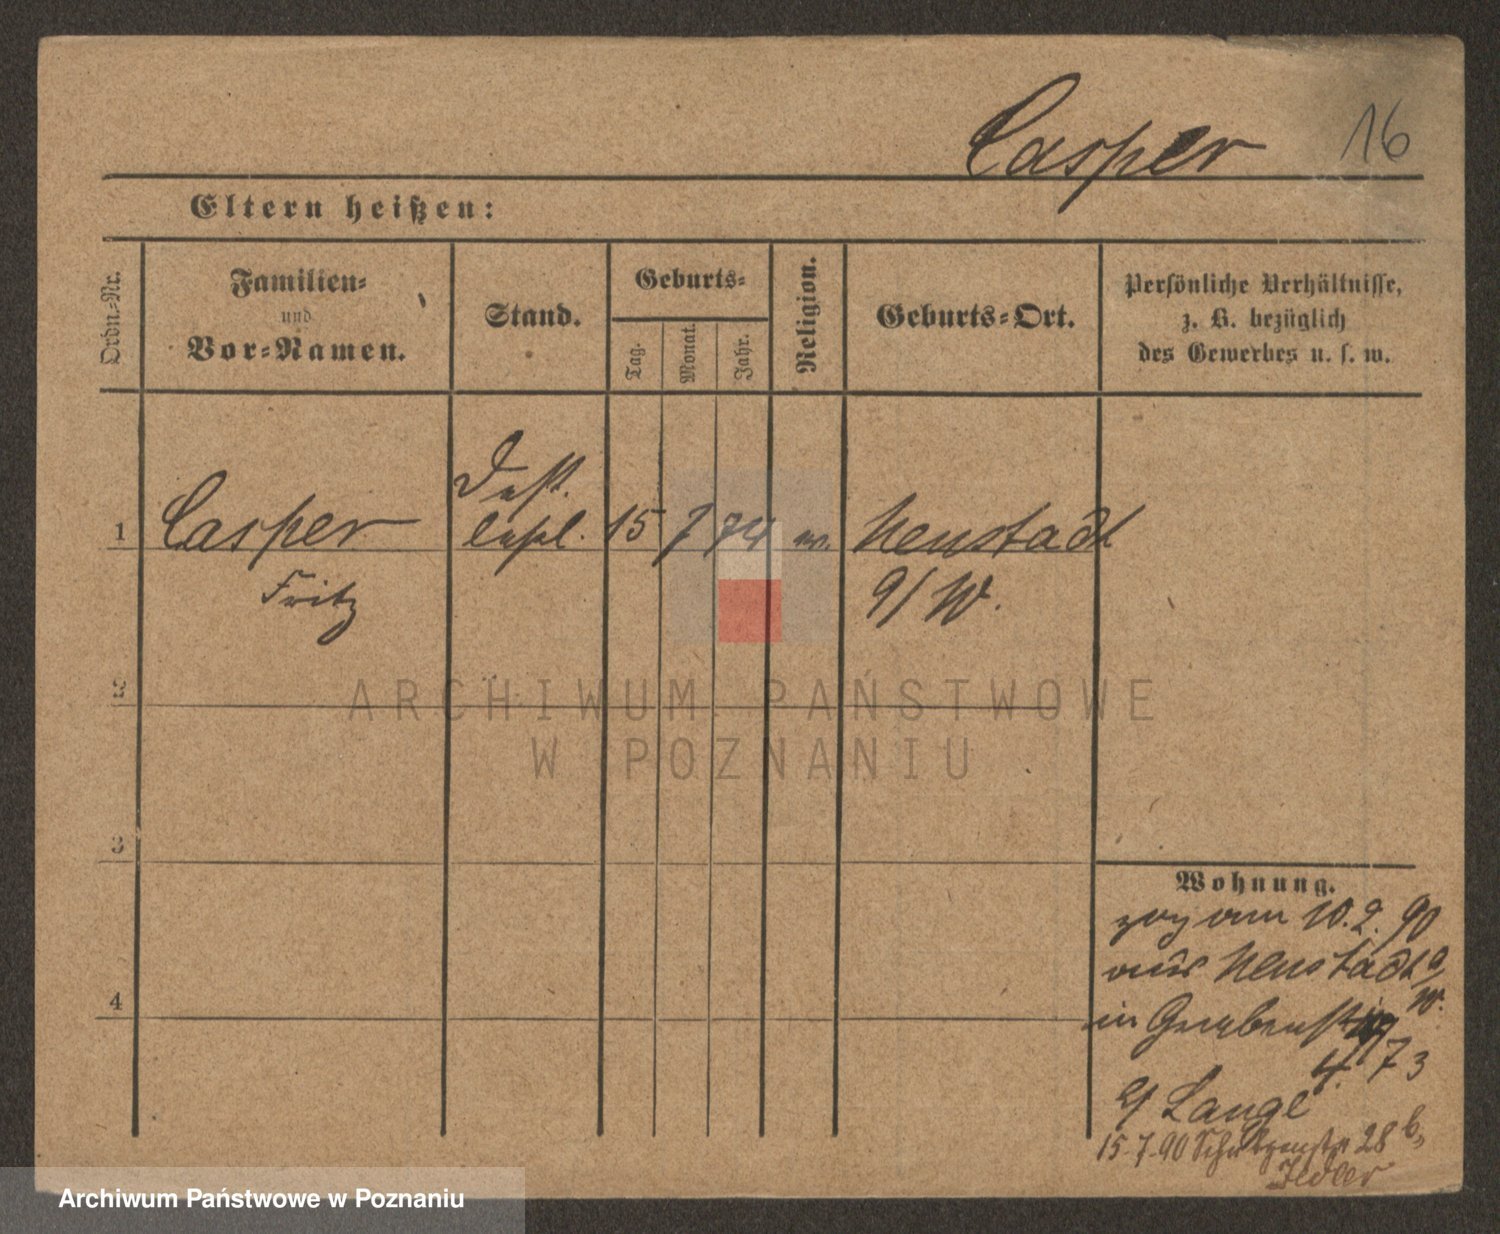 Casper 16
Eltern heißen:
Ordn.-Nr.
Familien-
und
Vor-Namen.
Stand.
Geburts-
Tag.
Monat.
Jahr.
Religion.
Geburts-Ort.
Persönliche Verhältnisse,
z. B. bezüglich
des Gewerbes u. s. w.
Dest.
1 Casper lehrl. 15 7 74 m. Neustadt
Fritz a/W.
2
ARCHIWUM PAŃSTWOWE
W POZNANIU
3
Wohnung.
zog am 10.2.90
aus Neustadt a/W.
4
in Grabenstr
4. 73
b/ Lange
15.7.90 Schützenstr 28 b,
Archiwum Państwowe w Poznaniu